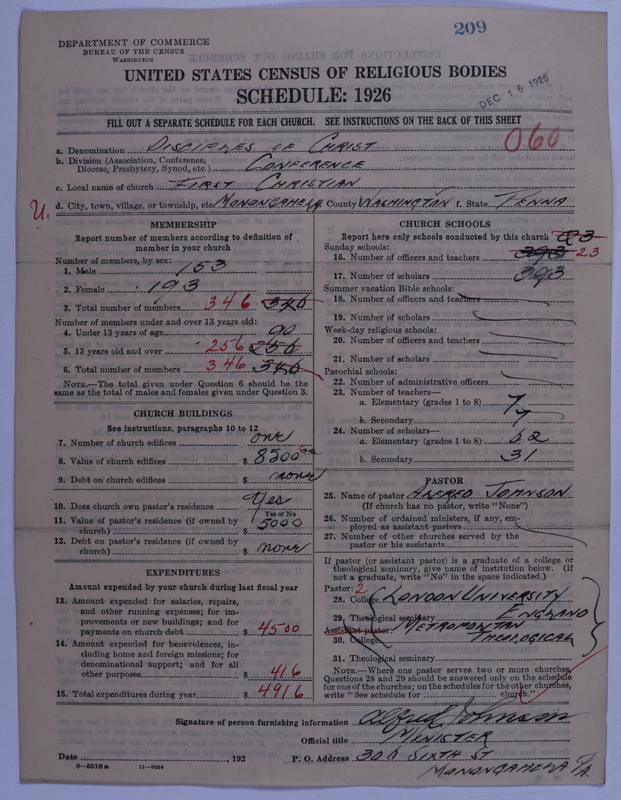 209
DEPARTMENT OF COMMERCE
BUREAU OF THE CENSUS
WASHINGTON
UNITED STATES CENSUS OF RELIGIOUS BODIES
SCHEDULE: 1926
DEC 15 1926
FILL OUT A SEPARATE SCHEDULE FOR EACH CHURCH. SEE INSTRUCTIONS ON THE BACK OF THIS SHEET
060
a. Denomination DISCIPLES OF CHRIST
b. Division (Association, Conference, Diocese, Presbytery, Synod, etc.) CONFERENCE
c. Local name of church FIRST CHRISTIAN
U.
d. City, town, village, or township, etc. MONONGAHELA County WASHINGTON f. State PENNA
MEMBERSHIP
Report number of members according to definition of
member in your church
Number of members, by sex:
1. Male 153
2. Female 193
3. Total number of members 346 346
Number of members under and over 13 years old:
4. Under 13 years of age 90
5. 13 years old and over 256 256
6. Total number of members 346 346
NOTE.—The total given under Question 6 should be the
same as the total of males and females given under Question 3.
CHURCH BUILDINGS
See instructions, paragraphs 10 to 12
7. Number of church edifices one
8. Value of church edifices $ 8500 00
9. Debt on church edifices $ none
10. Does church own pastor's residence Yes
Yes or No
11. Value of pastor's residence (if owned by
church) $ 5000
12. Debt on pastor's residence (if owned by
church) $ none
EXPENDITURES
Amount expended by your church during last fiscal year
13. Amount expended for salaries, repairs,
and other running expenses; for im-
provements or new buildings; and for
payments on church debt $ 4500
14. Amount expended for benevolences, in-
cluding home and foreign missions; for
denominational support; and for all
other purposes $ 416
15. Total expenditures during year $ 4916
CHURCH SCHOOLS
Report here only schools conducted by this church 23
Sunday schools:
16. Number of officers and teachers 393 23
17. Number of scholars 393
Summer vacation Bible schools:
18. Number of officers and teachers
19. Number of scholars
Week-day religious schools:
20. Number of officers and teachers
21. Number of scholars
Parochial schools:
22. Number of administrative officers
23. Number of teachers—
a. Elementary (grades 1 to 8) 7
b. Secondary 4
24. Number of scholars—
a. Elementary (grades 1 to 8) 62
b. Secondary 31
PASTOR
25. Name of pastor ALFRED JOHNSON
(If church has no pastor, write "None")
26. Number of ordained ministers, if any, em-
ployed as assistant pastors
27. Number of other churches served by the
pastor or his assistants
If pastor (or assistant pastor) is a graduate of a college or
theological seminary, give name of institution below. (If
not a graduate, write "No" in the space indicated.)
Pastor: 2
28. College LONDON UNIVERSITY
29. Theological seminary ENGLAND
Assistant pastor: METROPOLITAN
30. College THEOLOGICAL
31. Theological seminary
NOTE.—Where one pastor serves two or more churches,
Questions 28 and 29 should be answered only on the schedule
for one of the churches; on the schedules for the other churches,
write "See schedule for church."
Signature of person furnishing information Alfred Johnson
Official title MINISTER
Date , 192 P. O. Address 300 SIXTH ST
MONONGAHELA PA.
8-5518 a 11-9064